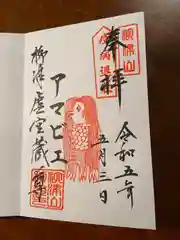 奉拝
令和五年
五月三日
アマビエ
柳津虚空蔵尊